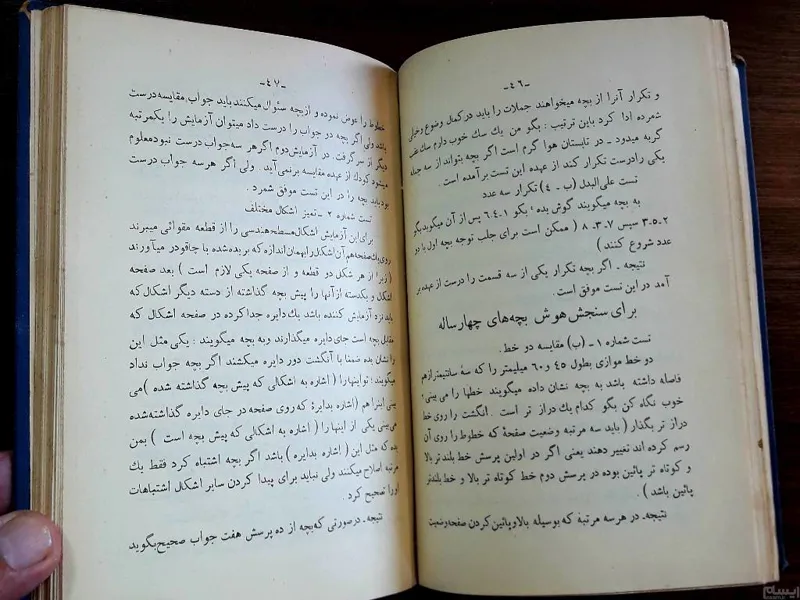 -٤٦-
و تکرار آنرا از بچه میخواهند جملات را باید درکمال وضوح
شمرده ادا کرد باین ترتیب : بگو من یك سك خوب دارم سك
گربه میدود - در تابستان هوا گرم است اگر بچه بتواند از سه جمله
یکی رادرست تکرار کند از عهده این تست برآمده است .
تست علی‌البدل (ب - ٤) تکرار سه عدد
به بچه میگویند گوش بده ، بگو ٦.٤.١ پس از آن میگوید بگو
٢.٥.٣ سپس ٨.٣.٧ ( ممکن است برای جلب توجه بچه اول با دو
عدد شروع کنند )
نتیجه ـ اگر بچه تکرار یکی از سه قسمت را درست از عهده بر
آمد در این تست موفق است .
برای سنجش هوش بچه‌های چهارساله
تست شماره ١ ـ (ب) مقایسه دو خط .
دو خط موازی بطول ٤٥ و ٦٠ میلیمتر را که سهٔ سانتیمتر ازهم
فاصله داشته باشد به بچه نشان داده میگویند خطها را می بینی؛
خوب نگاه کن بگو کدام یك دراز تر است . انگشت را روی خط
دراز تر بگذار ( باید سه مرتبه وضعیت صفحهٔ که خطوط را روی آن
رسم کرده اند تغییر دهند یعنی اگر در اولین پرسش خط بلند تر بالا
و کوتاه تر پائین بوده در پرسش دوم خط کوتاه تر بالا و خط بلندتر
پائین باشد ) .
نتیجه ـ در هرسه مرتبهٔ که بوسیله بالا و پائین کردن صفحه وضعیت
-٤٧-
خطوط را عوض نموده و ازبچه سئوال میکنند باید جواب مقایسه درست
باشد ولی اگر بچه دو جواب را درست داد میتوان آزمایش را یکمرتبه
دیگر از سر گرفت . در آزمایش دوم اگر هر سه جواب درست نبود معلوم
میشود کودك از عهده مقایسه برنمی آید . ولی اگر هرسه جواب درست
بود باید بچه را در این تست موفق شمرد .
تست شماره ٢ ـ تمیز اشکال مختلف
برای این آزمایش اشکال مسطح هندسی را از قطعه مقوائی میبرند
روی یك صفحه هم آن اشکال را بهمان اندازه که بریده شده با چاقو در میآورند
( زیرا از هر شکل دو قطعه و از صفحه یکی لازم است ) بعد صفحه
اشکال و یکدسته از آنها را پیش بچه گذاشته از دسته دیگر اشکال که
باید نزد آزمایش کننده باشد یك دایره جدا کرده در صفحه اشکال که
مقابل بچه است جای دایره میگذارند و به بچه میگویند : یکی مثل این
را نشان بده ضمنا با آنگشت دور دایره میکشند اگر بچه جواب نداد
میگویند : تو اینها را ( اشاره به اشکالی که پیش بچه گذاشته شده ) می
بینی اینرا هم (اشاره بدایرهٔ که روی صفحه در جای دایره گذاشته شده
می بینی یکی از اینها را ( اشاره به اشکالی که پیش بچه است ) بمن
بده که مثل این ( اشاره بدایره ) باشد اگر بچه اشتباه کرد فقط یك
مرتبه اصلاح میکنند ولی نباید برای پیدا کردن سایر اشکال اشتباهات
اورا تصحیح کرد .
نتیجه ـ درصورتی که بچه از ده پرسش هفت جواب صحیح بگوید
ایسام